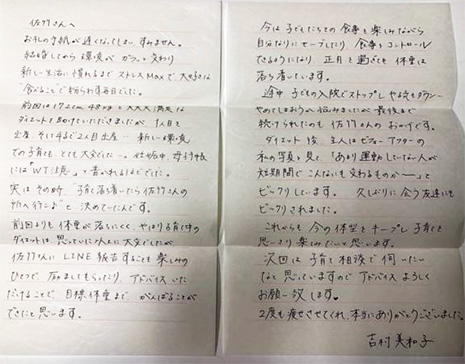 佐竹さんへ
お礼の手紙が遅くなってしまい すみません。
結婚してから環境が ガラッと変わり
新しい生活に慣れるまで ストレスMaxで 大好きな
食べることで 紛らわす毎日でした。
前回は172cm 48kgと 大大大満足な
ダイエットを助けていただきましたが 1人目を
出産、そして4年で2人目出産… 新しい環境
での子育ても とても大変でした…。妊娠中 母子手帳
には "WT注意" と書かれるほどでした。
実は その時 、子育て落ち着いたら佐竹さんの
所へ行こう と決めてたんです。
前回よりも 体重が落ちにくく、やはり 子育て中の
ダイエットは 思っていた以上に大変でしたが
佐竹さんに LINE報告することも 楽しみの
ひとつで、励ましてもらったり、アドバイスいた
だけることで、目標体重まで がんばることが
できたと思います。
今は 子どもたちとの 食事も楽しみながら
自分なりに セーブしたり、食事をコントロール
できるようになり 正月を過ぎても 体重は
落ち着いています。
途中 子どもの入院でストップし やる気もダウン…
やめてしまおうか悩みましたが 最後まで
続けられたのも 佐竹さんの おかげです。
ダイエット後、主人は ビフォーアフターの
私の写真を見て 「あまり運動していない人が
短期間で こんないも変わるものかー」と
ビックリしています。 久しぶりに会う友達にも
ビックリされました。
これからも 今の体型を キープし 子育ても
思いっきり 楽しみたいと思います。
次回は 子育て相談で 伺いたい
なと 思っていますので アドバイス よろしく
お願い致します。
2度も痩せさせてくれ、本当にありがとうございました。
吉村 美和子